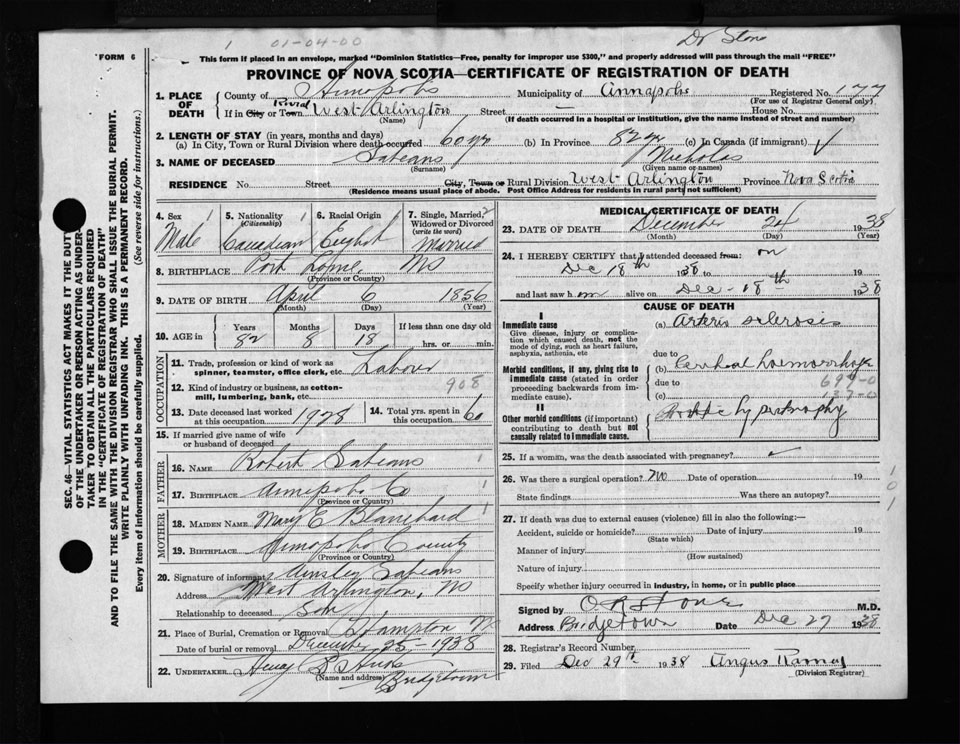 1 01-04-00
Dr Stone
FORM 6
This form if placed in an envelope, marked "Dominion Statistics—Free, penalty for improper use $300," and properly addressed will pass through the mail "FREE"
PROVINCE OF NOVA SCOTIA—CERTIFICATE OF REGISTRATION OF DEATH
1. PLACE OF DEATH
County of Annapolis Municipality of Annapolis Registered No. 177
(For use of Registrar General only)
If in City or Town Rural West Arlington Street — House No.
(Name) (If death occurred in a hospital or institution, give the name instead of street and number)
2. LENGTH OF STAY (in years, months and days)
(a) In City, Town or Rural Division where death occurred 60 yr (b) In Province 82 yr (c) In Canada (if immigrant) ✓
3. NAME OF DECEASED Sabeans Nicholas
(Surname) (Given name or names)
RESIDENCE No. Street City, Town or Rural Division West Arlington Province Nova Scotia
(Residence means usual place of abode. Post Office Address for residents in rural parts not sufficient)
4. Sex 1 Male
5. Nationality 1 (Citizenship) Canadian
6. Racial Origin 1 English
7. Single, Married, Widowed or Divorced (write the word) 2 Married
8. BIRTHPLACE Port Lorne NS
(Province or Country)
9. DATE OF BIRTH April 6 1856
(Month) (Day) (Year)
10. AGE in Years 82 Months 8 Days 18 If less than one day old hrs. or min.
OCCUPATION
11. Trade, profession or kind of work as spinner, teamster, office clerk, etc. Labour
12. Kind of industry or business, as cotton-mill, lumbering, bank, etc. 908
13. Date deceased last worked at this occupation 1928
14. Total yrs. spent in this occupation 60
15. If married give name of wife or husband of deceased
FATHER
16. NAME Robert Sabeans 1
17. BIRTHPLACE Annapolis Co 1
(Province or Country)
MOTHER
18. MAIDEN NAME Mary E Blanchard 1
19. BIRTHPLACE Annapolis County
(Province or Country)
20. Signature of informant Ainsley Sabeans
Address West Arlington, NS
Relationship to deceased Son
21. Place of Burial, Cremation or Removal Hampton NS
Date of burial or removal December 25 - 1938
22. UNDERTAKER Bridgetown
(Name and address)
MEDICAL CERTIFICATE OF DEATH
23. DATE OF DEATH December 24 1938
(Month) (Day) (Year)
24. I HEREBY CERTIFY that I attended deceased from: on
Dec 18th 1938 to 19
and last saw him alive on Dec - 18th 1938
CAUSE OF DEATH
I
Immediate cause
Give disease, injury or complication which caused death, not the mode of dying, such as heart failure, asphyxia, asthenia, etc
(a) Arterio sclerosis
due to
Morbid conditions, if any, giving rise to immediate cause (stated in order proceeding backwards from immediate cause).
(b) Cerebral haemorrhage
due to
(c) 137-0
II
Other morbid conditions (if important) contributing to death but not causally related to immediate cause.
hypertrophy
25. If a woman, was the death associated with pregnancy? ✓
26. Was there a surgical operation? no Date of operation 19
State findings Was there an autopsy?
1
0
1
27. If death was due to external causes (violence) fill in also the following:—
Accident, suicide or homicide? Date of injury 19
(State which)
Manner of injury
(How sustained)
Nature of injury
Specify whether injury occurred in industry, in home, or in public place
Signed by O R Stone M.D.
Address Bridgetown Date Dec 27 1938
28. Registrar's Record Number
29. Filed Dec 29th 1938 Angus Ramey
(Division Registrar)
SEC. 46—VITAL STATISTICS ACT MAKES IT THE DUTY
OF THE UNDERTAKER OR PERSON ACTING AS UNDER-
TAKER TO OBTAIN ALL THE PARTICULARS REQUIRED
IN THE "CERTIFICATE OF REGISTRATION OF DEATH"
AND TO FILE THE SAME WITH THE DIVISION REGISTRAR WHO SHALL ISSUE THE BURIAL PERMIT.
WRITE PLAINLY WITH UNFADING INK. THIS IS A PERMANENT RECORD.
Every item of information should be carefully supplied. (See reverse side for instructions.)